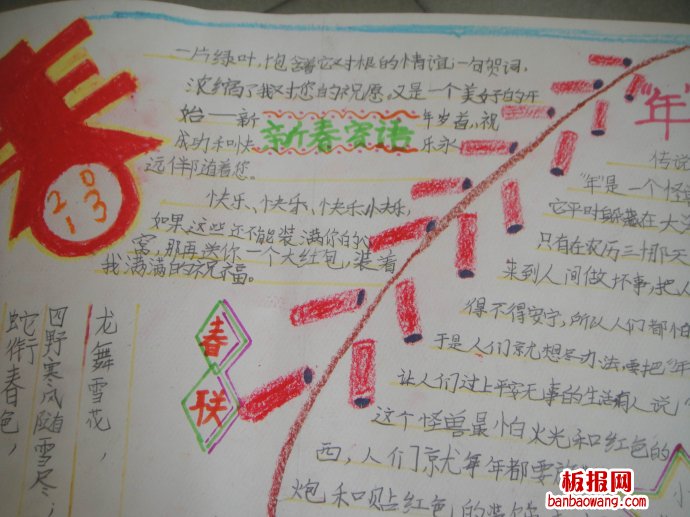 春
2013
一片绿叶，包含着它对根的情谊；一句贺词，
浓缩了我对您的祝愿。又是一个美好的开
始——新年岁首，祝
新春寄语
成功和快乐永
远伴随着您。
快乐、快乐、快乐小快乐，
如果这些还不能装满你的心
窝，那再送你一个大红包，装着
我满满的祝福。
春联
龙舞雪花，
四野寒风随雪尽；
蛇衔春色，
"年"
传说
"年"是一个怪
它平时躲藏在大
只有在农历三十那天
来到人间做坏事，把人
得不得安宁，所以人们都怕
于是人们就想尽办法，要把"年
让人们过上平安无事的生活有人说
这个怪兽最怕火光和红色的
西，人们就年年都要放
炮和贴红色的
小
板报网
banbaowang.com